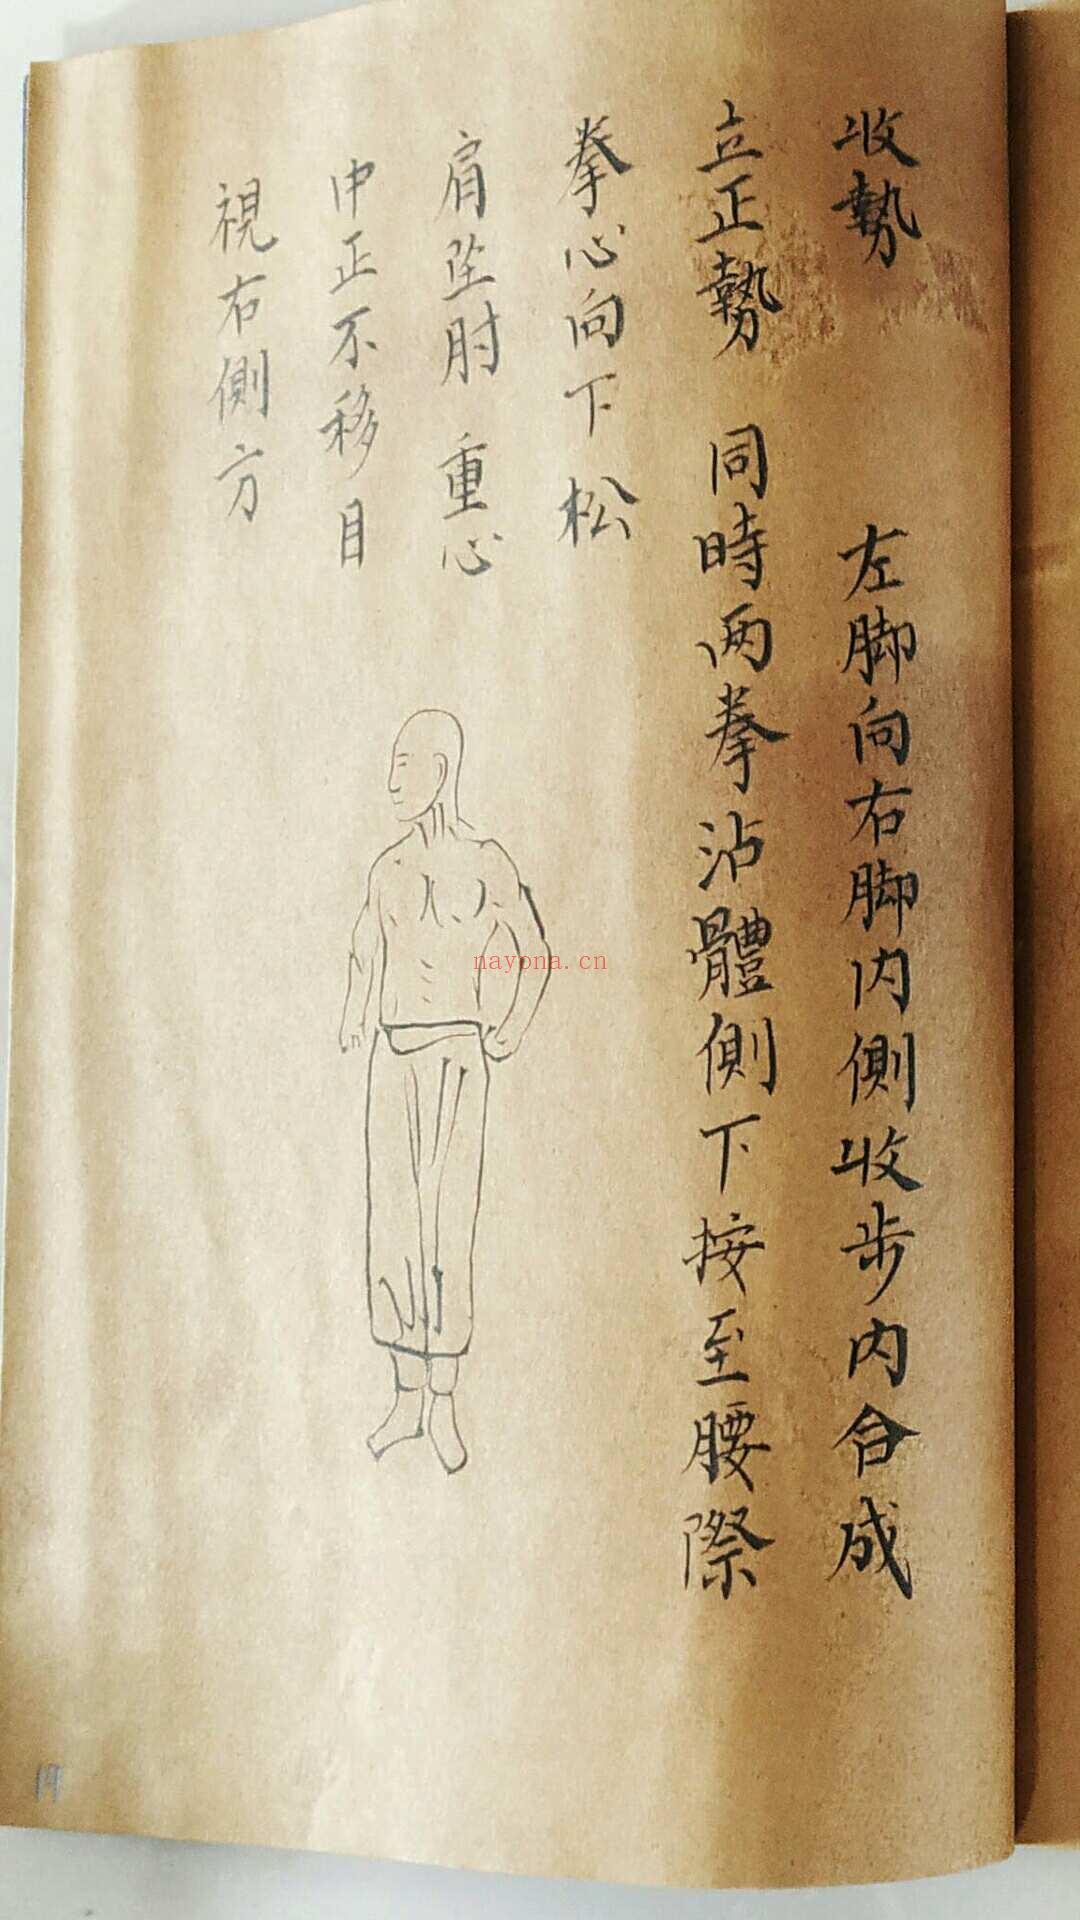 收勢　左脚向右脚内側收步内合成
立正勢　同時两拳沾體側下按至腰際
拳心向下松
肩坠肘　重心
中正不移目
視右側方
nayona.cn